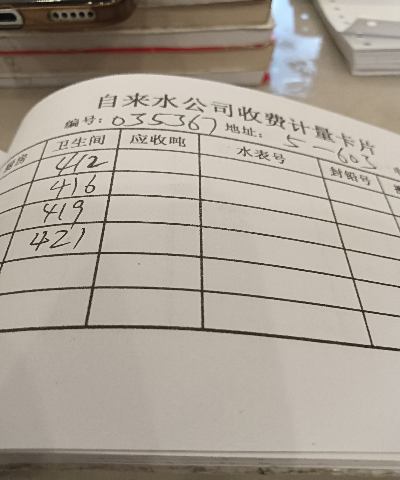 自来水公司收费计量卡片
编号：035367 地址：5—603
厨房 卫生间 应收吨 水表号 封铅号
412
416
419
421